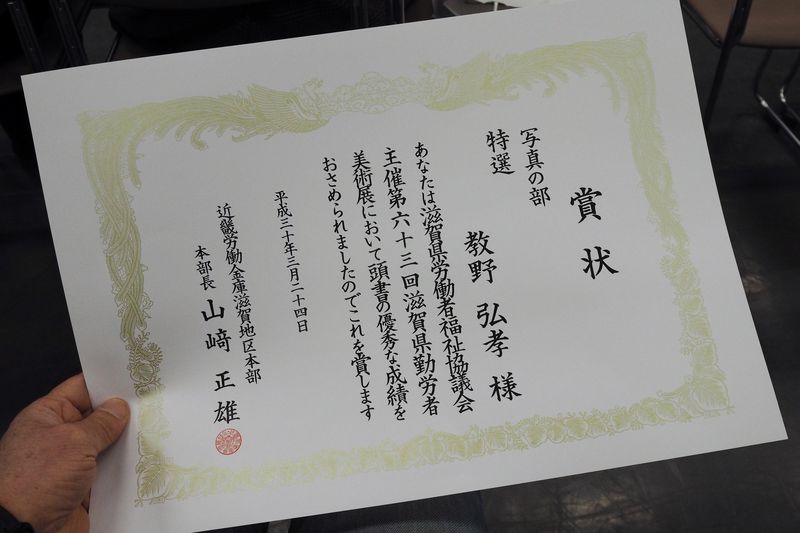 賞状
写真の部
特選
教野弘孝様
あなたは滋賀県労働者福祉協議会
主催第六十三回滋賀県勤労者
美術展において頭書の優秀な成績を
おさめられましたのでこれを賞します
平成三十年三月二十四日
近畿労働金庫滋賀地区本部
本部長 山﨑正雄